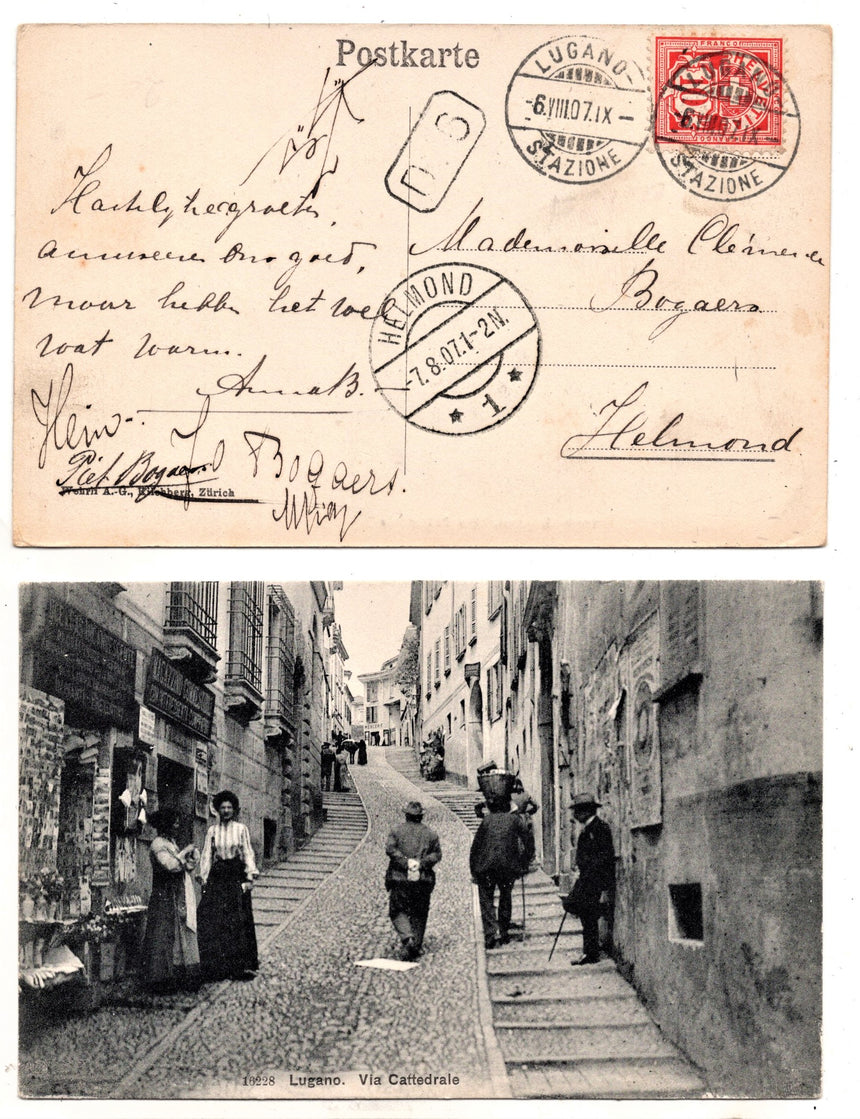 Postkarte
LUGANO
-6.VIII.07.IX-
STAZIONE
FRANCO
10
LUGANO
-6.VIII.07.IX-
STAZIONE
D 6
Hartelijke groeten,
amuseeren ons goed,
maar hebben het wel
wat warm.
Anna B.
Hein
Jo Bogaers.
Piet Bogaers
Wehrli A.-G., Kilchberg, Zürich
Mademoiselle Clémence
Bogaers
Helmond
HELMOND
-7.8.07.1-2N.
* 1 *
16228 Lugano. Via Cattedrale